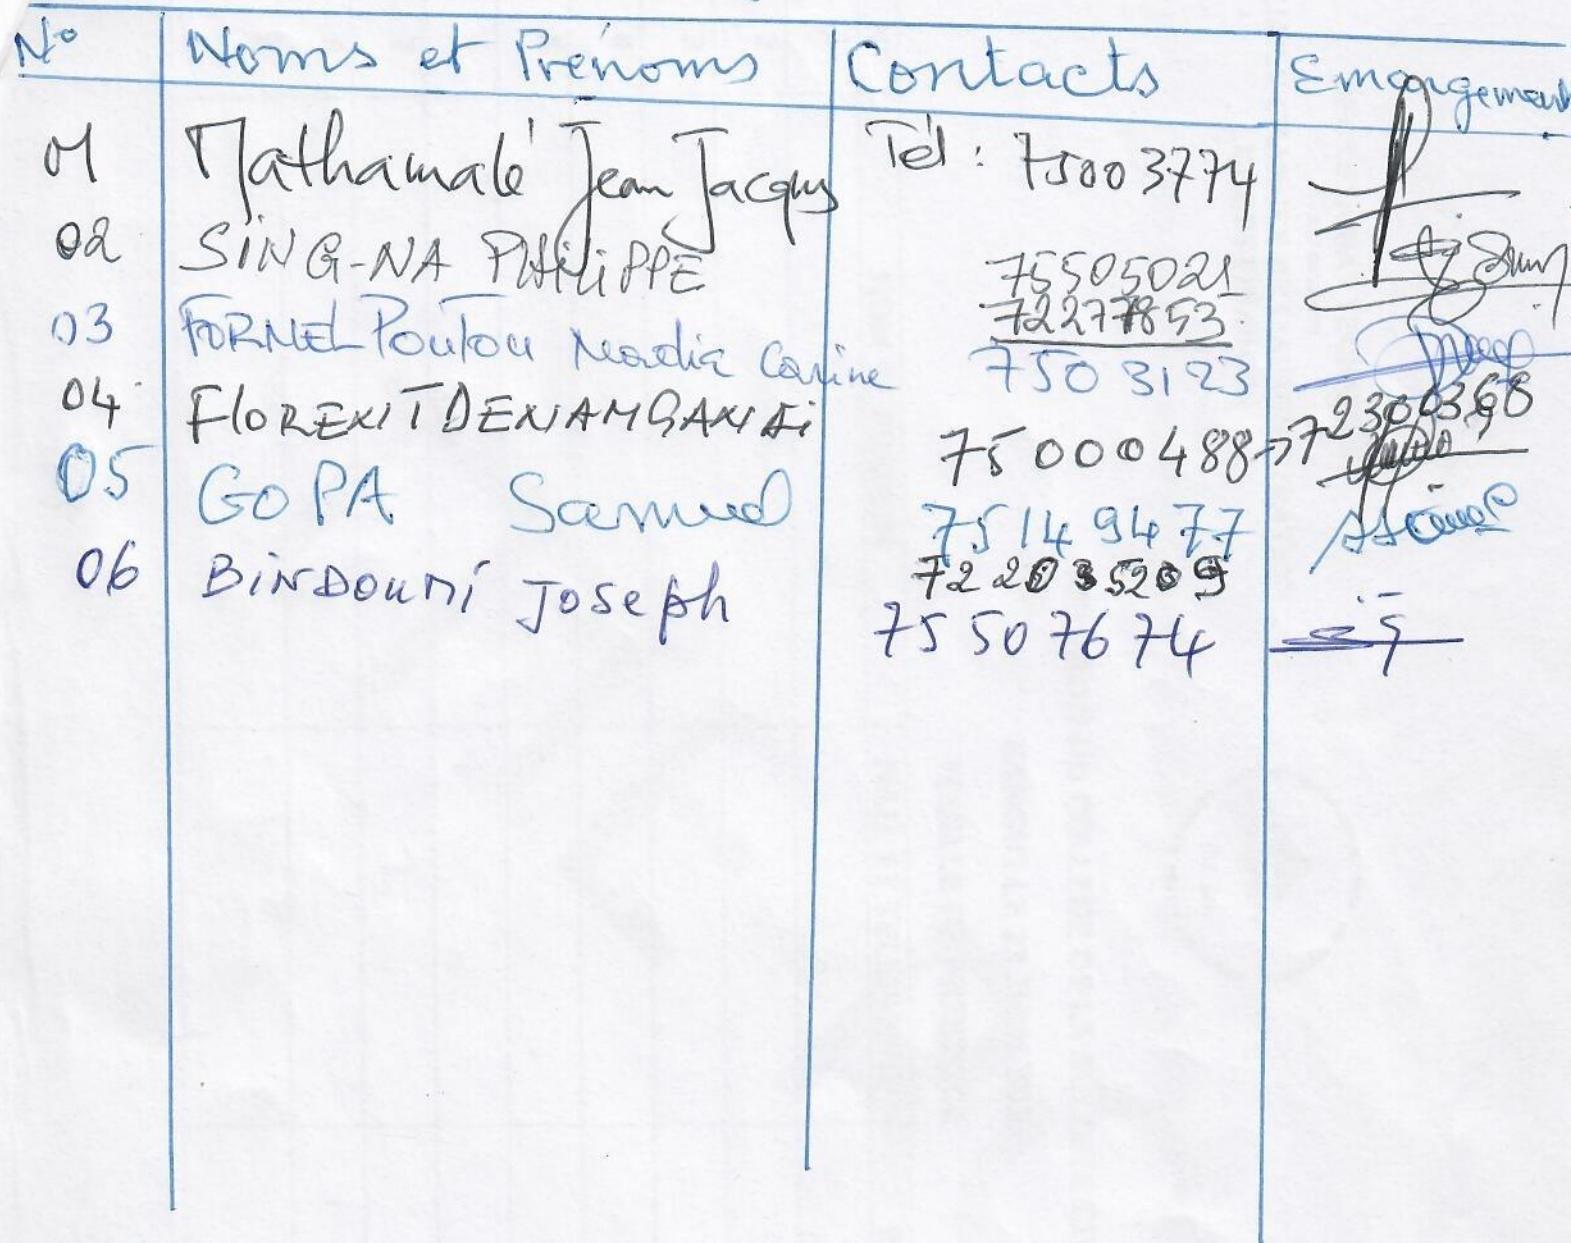 N° Noms et Prénoms Contacts Emargement
01 Mathamalé Jean Jacques Tél : 75003774
02 SING-NA PHILIPPE 75505021
72277853
03 FORNEL Poutou Nadia Carine 7503123
04 FlORENT DENAMGANAi 75000488 → 72300368
05 GOPA Samuel 75149477
06 BINDOUMI Joseph 75507674